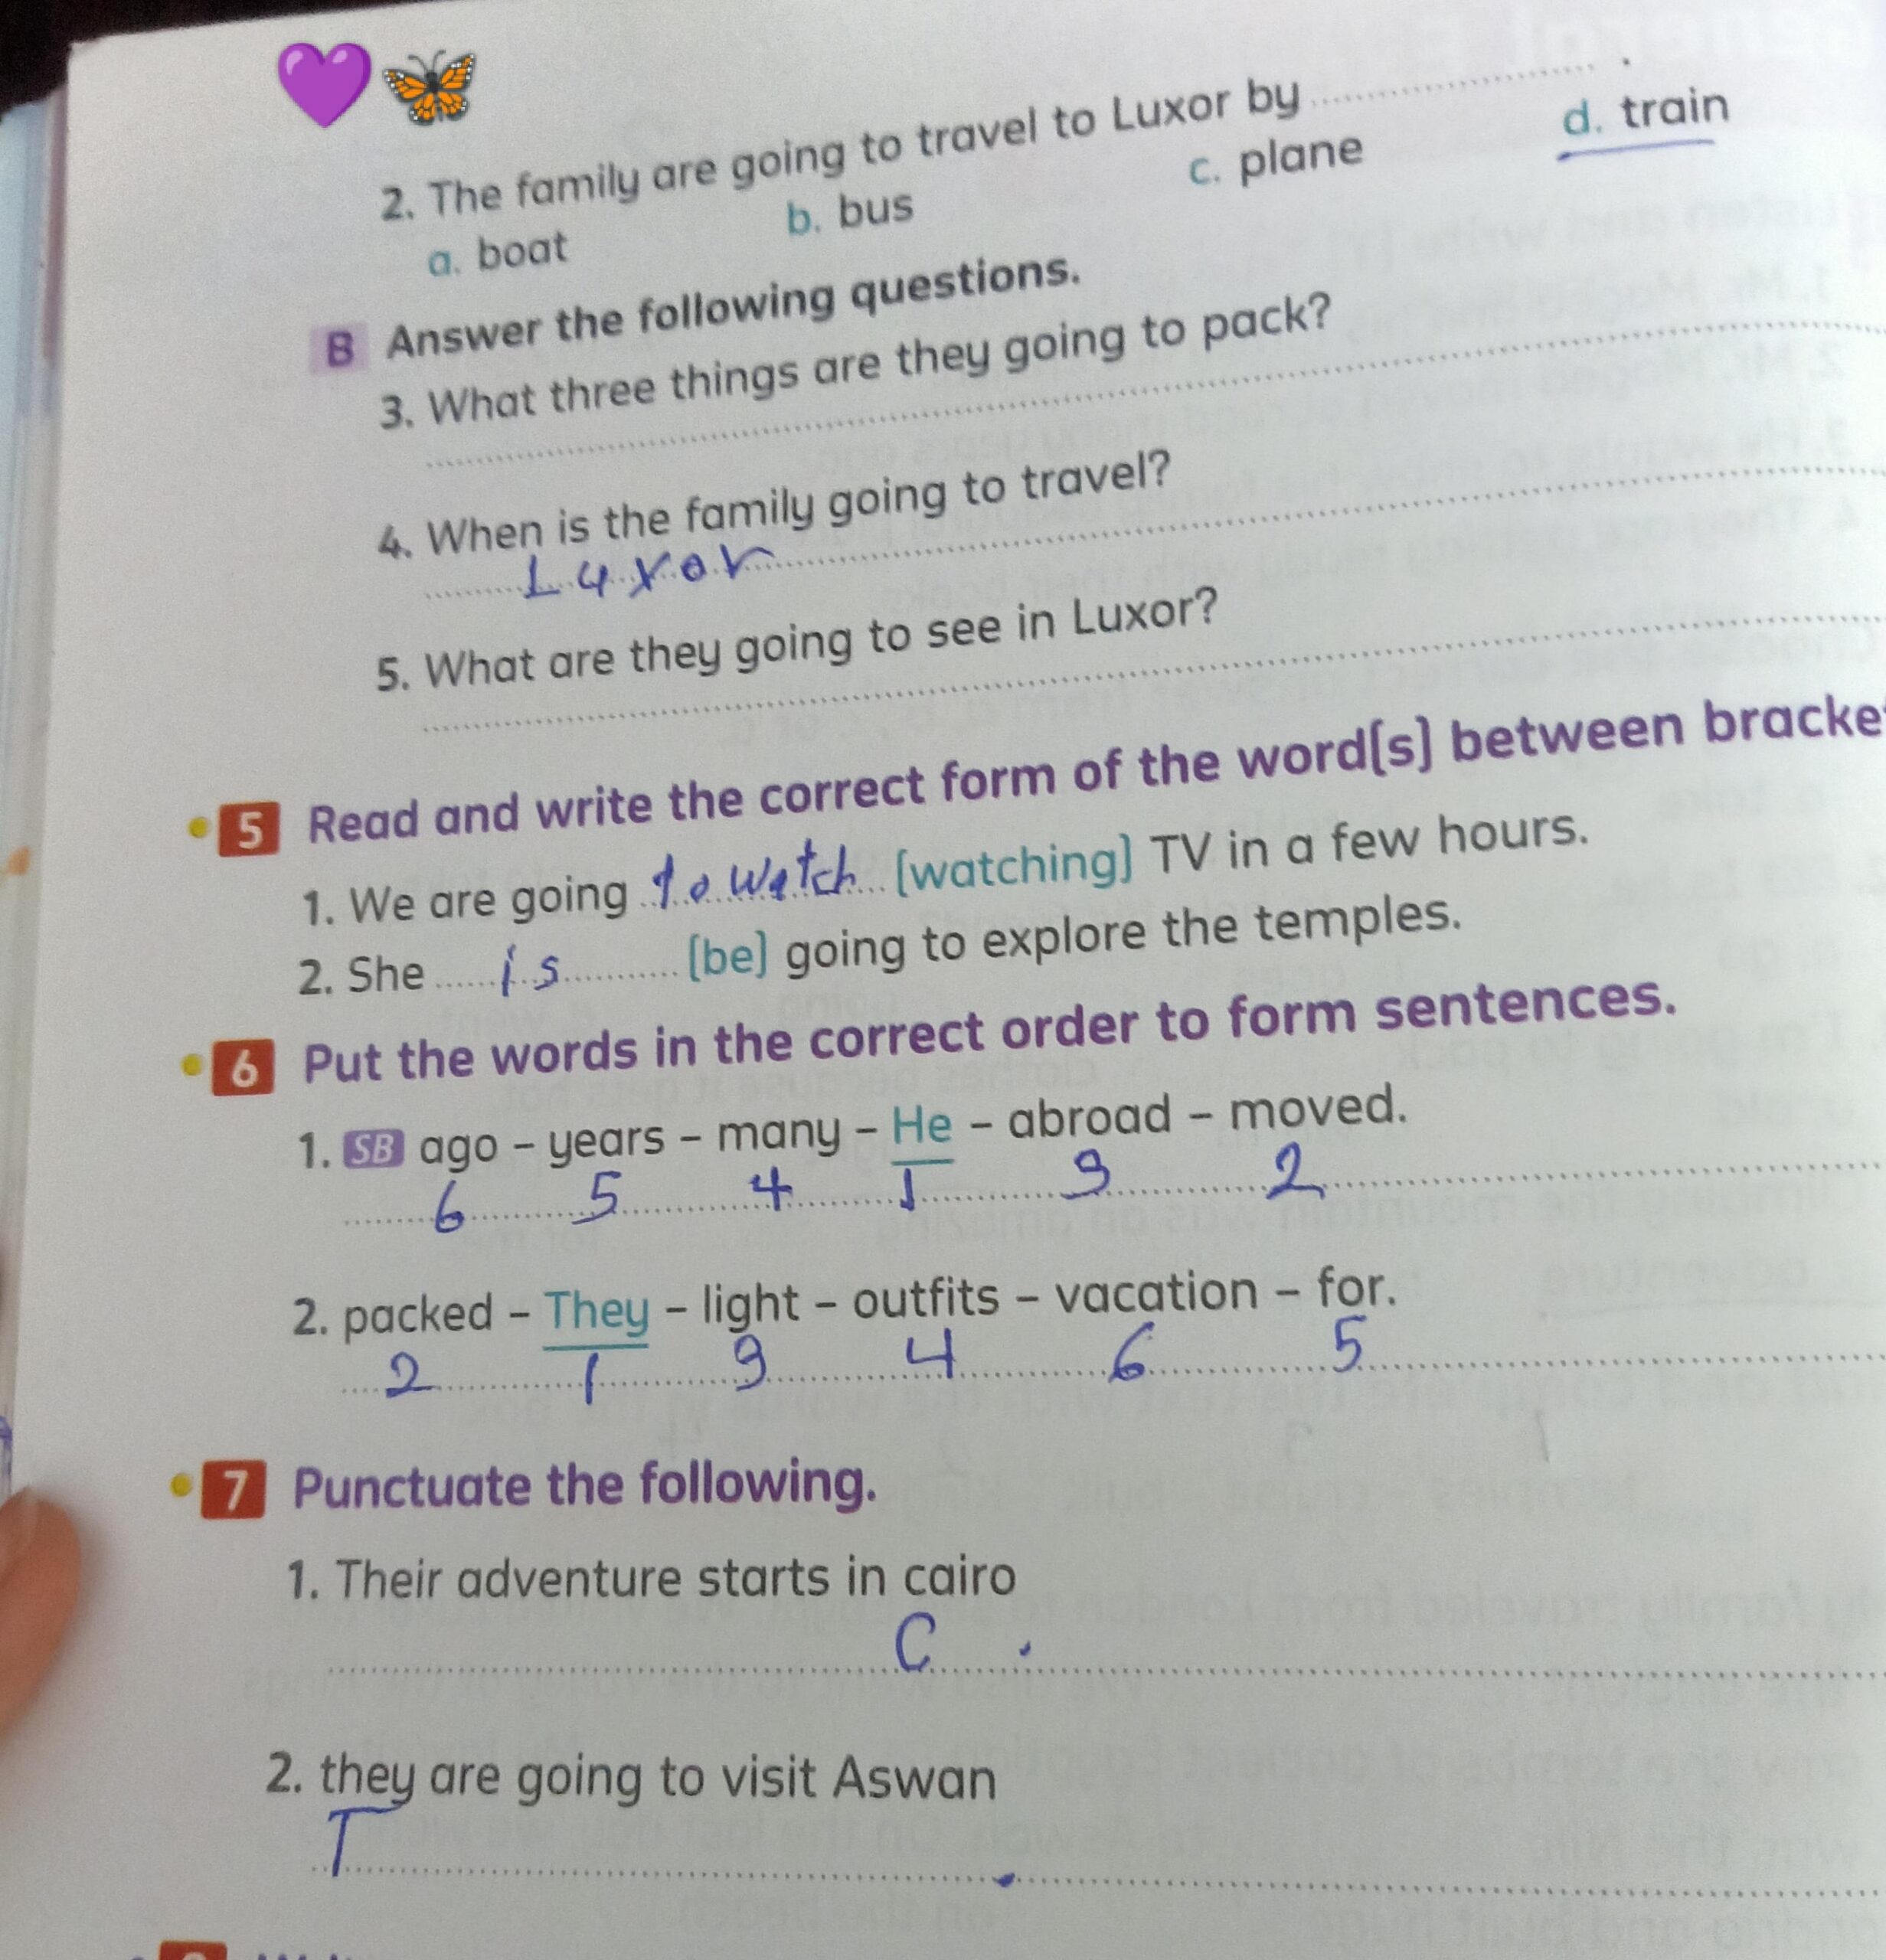 2. The family are going to travel to Luxor by .................... .
a. boat b. bus c. plane d. train
B Answer the following questions.
3. What three things are they going to pack?
4. When is the family going to travel?
Luxor
5. What are they going to see in Luxor?
5 Read and write the correct form of the word(s) between
1. We are going to watch (watching) TV in a few hours.
2. She is (be) going to explore the temples.
6 Put the words in the correct order to form sentences.
1. SB ago – years – many – He – abroad – moved.
6 5 4 1 3 2
2. packed – They – light – outfits – vacation – for.
2 1 3 4 6 5
7 Punctuate the following.
1. Their adventure starts in cairo
C .
2. they are going to visit Aswan
T .